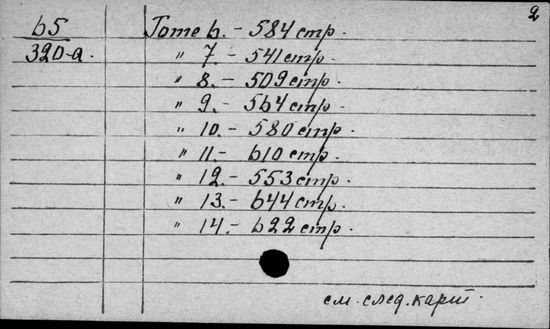 2
65
320-а.
Tome 6. - 584 стр.
" 7. - 541 стр.
" 8. - 509 стр.
" 9. - 564 стр.
" 10. - 580 стр.
" 11. - 610 стр.
" 12. - 553 стр.
" 13. - 644 стр.
" 14. - 622 стр.
см. след. карт.